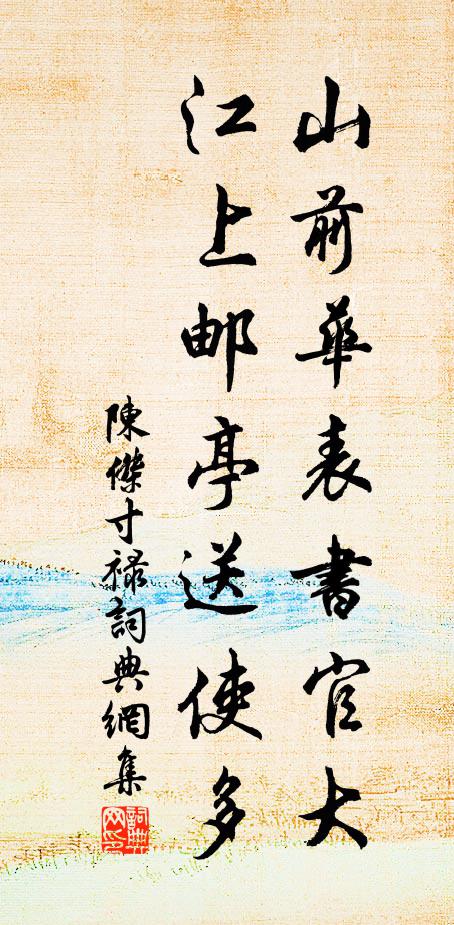 山前華表書官大
江上邮亭送使多
陳傑寸禄詞典網集
詞典网印